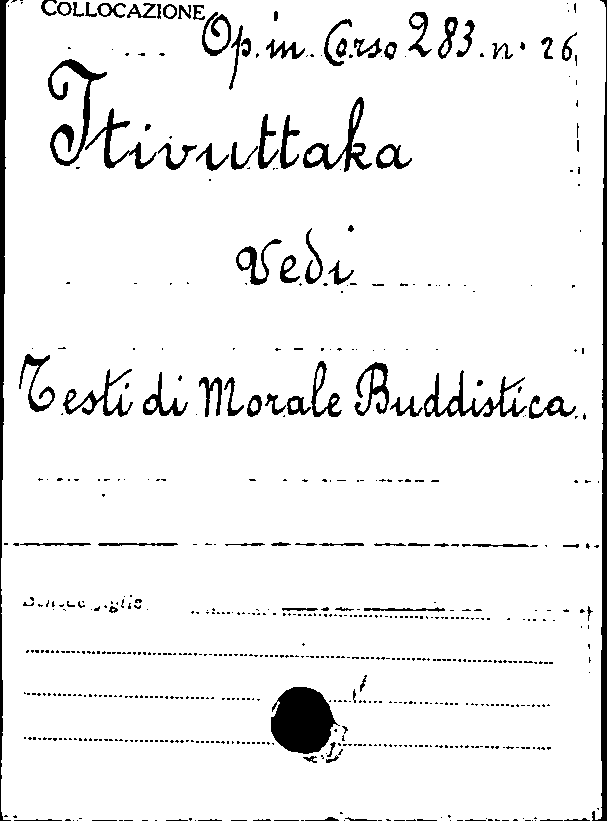 COLLOCAZIONE Op. in Corso 283. n. 26
Itivuttaka
Vedi
Testi di Morale Buddistica.